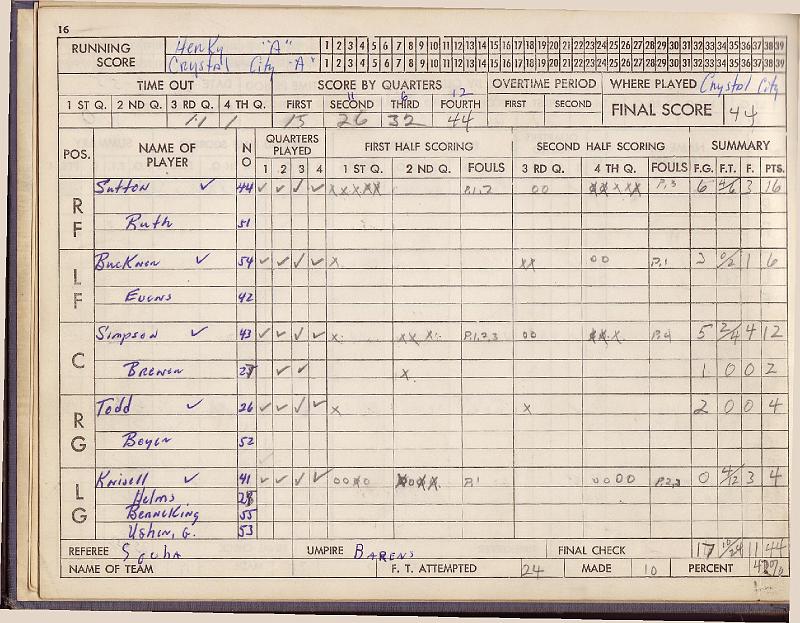 16
RUNNING SCORE
Henky "A" 1 2 3 4 5 6 7 8 9 10 11 12 13 14 15 16 17 18 19 20 21 22 23 24 25 26 27 28 29 30 31 32 33 34 35 36 37 38 39
Crystal City "A" 1 2 3 4 5 6 7 8 9 10 11 12 13 14 15 16 17 18 19 20 21 22 23 24 25 26 27 28 29 30 31 32 33 34 35 36 37 38 39
TIME OUT SCORE BY QUARTERS OVERTIME PERIOD WHERE PLAYED Crystal City
11 6 12
1 ST Q. 2 ND Q. 3 RD Q. 4 TH Q. FIRST SECOND THIRD FOURTH FIRST SECOND FINAL SCORE 44
15 26 32 44
POS. NAME OF PLAYER NO QUARTERS PLAYED FIRST HALF SCORING SECOND HALF SCORING SUMMARY
1 2 3 4 1 ST Q. 2 ND Q. FOULS 3 RD Q. 4 TH Q. FOULS F.G. F.T. F. PTS.
RF Sutton ✓ 44 ✓ ✓ ✓ ✓ XXXXX P.1,2 00 XXXXX P.3 6 4/6 3 16
Ruth 51
LF Bucknon ✓ 54 ✓ ✓ ✓ ✓ X XX 00 P.1 3 0/2 1 6
Evens 42
C Simpson ✓ 43 ✓ ✓ ✓ ✓ X XX X P.1,2,3 00 XXX P.4 5 2/4 4 12
Brewen ✓ ✓ X 1 0 0 2
RG Todd ✓ 26 ✓ ✓ ✓ ✓ X X 2 0 0 4
Boyer 52
LG Knisell ✓ 41 ✓ ✓ ✓ ✓ 00X0 X0XX P.1 0000 P.2,3 0 4/12 3 4
Helms 28
BenneKing 55
Ushen, G. 53
REFEREE UMPIRE Barens FINAL CHECK 17 10/24 11 44
NAME OF TEAM F. T. ATTEMPTED 24 MADE 10 PERCENT